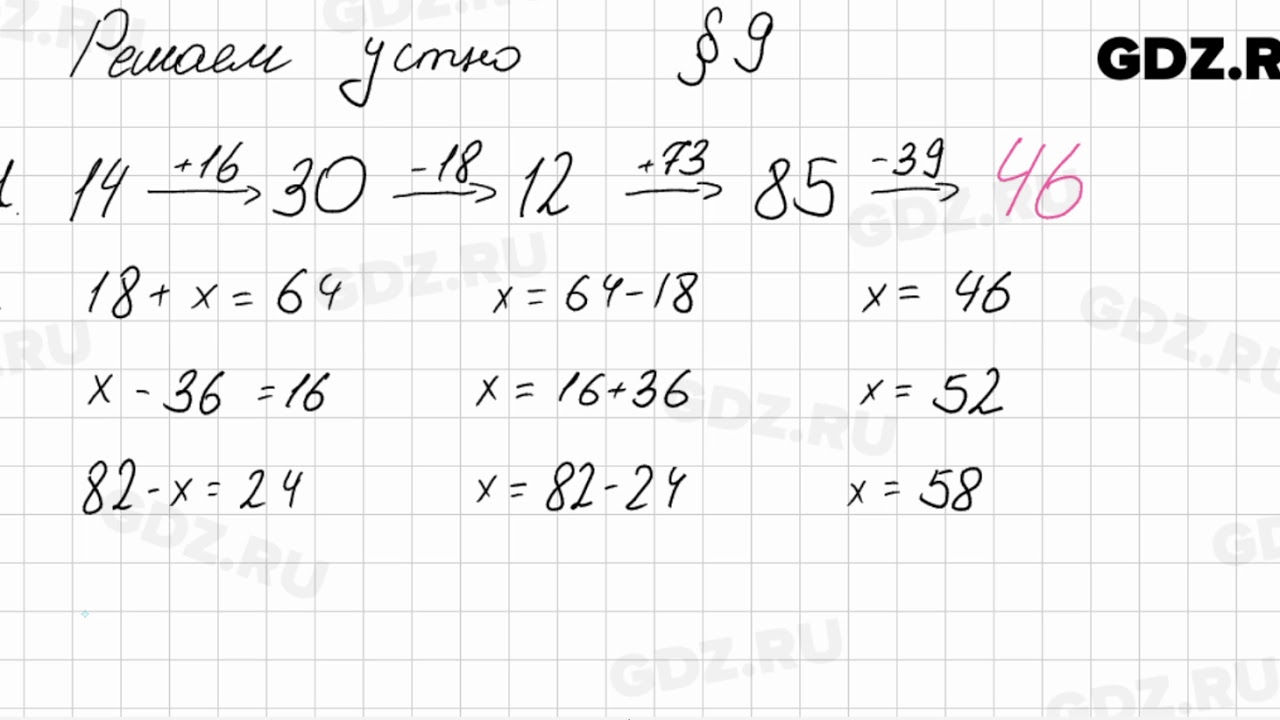 Решаем устно § 9
GDZ.R
1. 14 +16→ 30 -18→ 12 +73→ 85 -39→ 46
18 + x = 64 x = 64-18 x = 46
x - 36 = 16 x = 16+36 x = 52
82 - x = 24 x = 82-24 x = 58